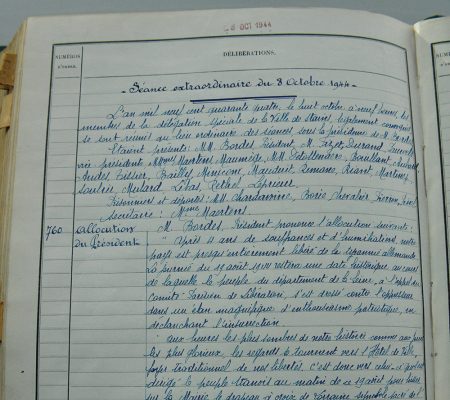 8 OCT 1944
NUMÉROS
D'ORDRE
DÉLIBÉRATIONS.
NUMÉROS
D'ORDRE
Séance extraordinaire du 8 Octobre 1944
L'an mil neuf cent quarante quatre, le huit octobre, à neuf heures, les
membres de la délégation spéciale de la Ville de Stains, légalement convoqués
se sont réunis au lieu ordinaire des séances sous la présidence de M. Bordes
Etaient présents: MM. Bordes Président, M. Fizet, Durand,
vice président Mmes Maertens Maumège, MM. Bouillant
Tissier, Bailles, Mauduit, Simono, Riant, Martinez,
Mulard, Lebas, Pethel, Lepreux.
Prisonniers et déportés: MM. Chardavoine, Borie, Chevalier
Secrétaire: Mme Maertens.
760 Allocution
du Président
M. Bordes, Président prononce l'allocution suivante:
" Après 4 ans de souffrances et d'humiliations, notre
pays est presqu'entièrement libéré de la tyrannie allemande.
La journée du 19 août 1944 restera une date historique au cours
de laquelle le peuple du département de la Seine, à l'appel du
Comité Parisien de Libération, s'est dressé contre l'oppresseur
dans un élan magnifique d'enthousiasme patriotique, en
déclenchant l'insurrection.
" Aux heures les plus sombres de notre histoire comme aux jours
les plus glorieux, les regards se tournent vers l'Hôtel de Ville,
foyer traditionnel de nos libertés. C'est donc vers celui-ci que s'est
dirigé le peuple stanois au matin de ce 19 août pour hisser
sur la Mairie le drapeau à croix de Lorraine symbole sacré de l